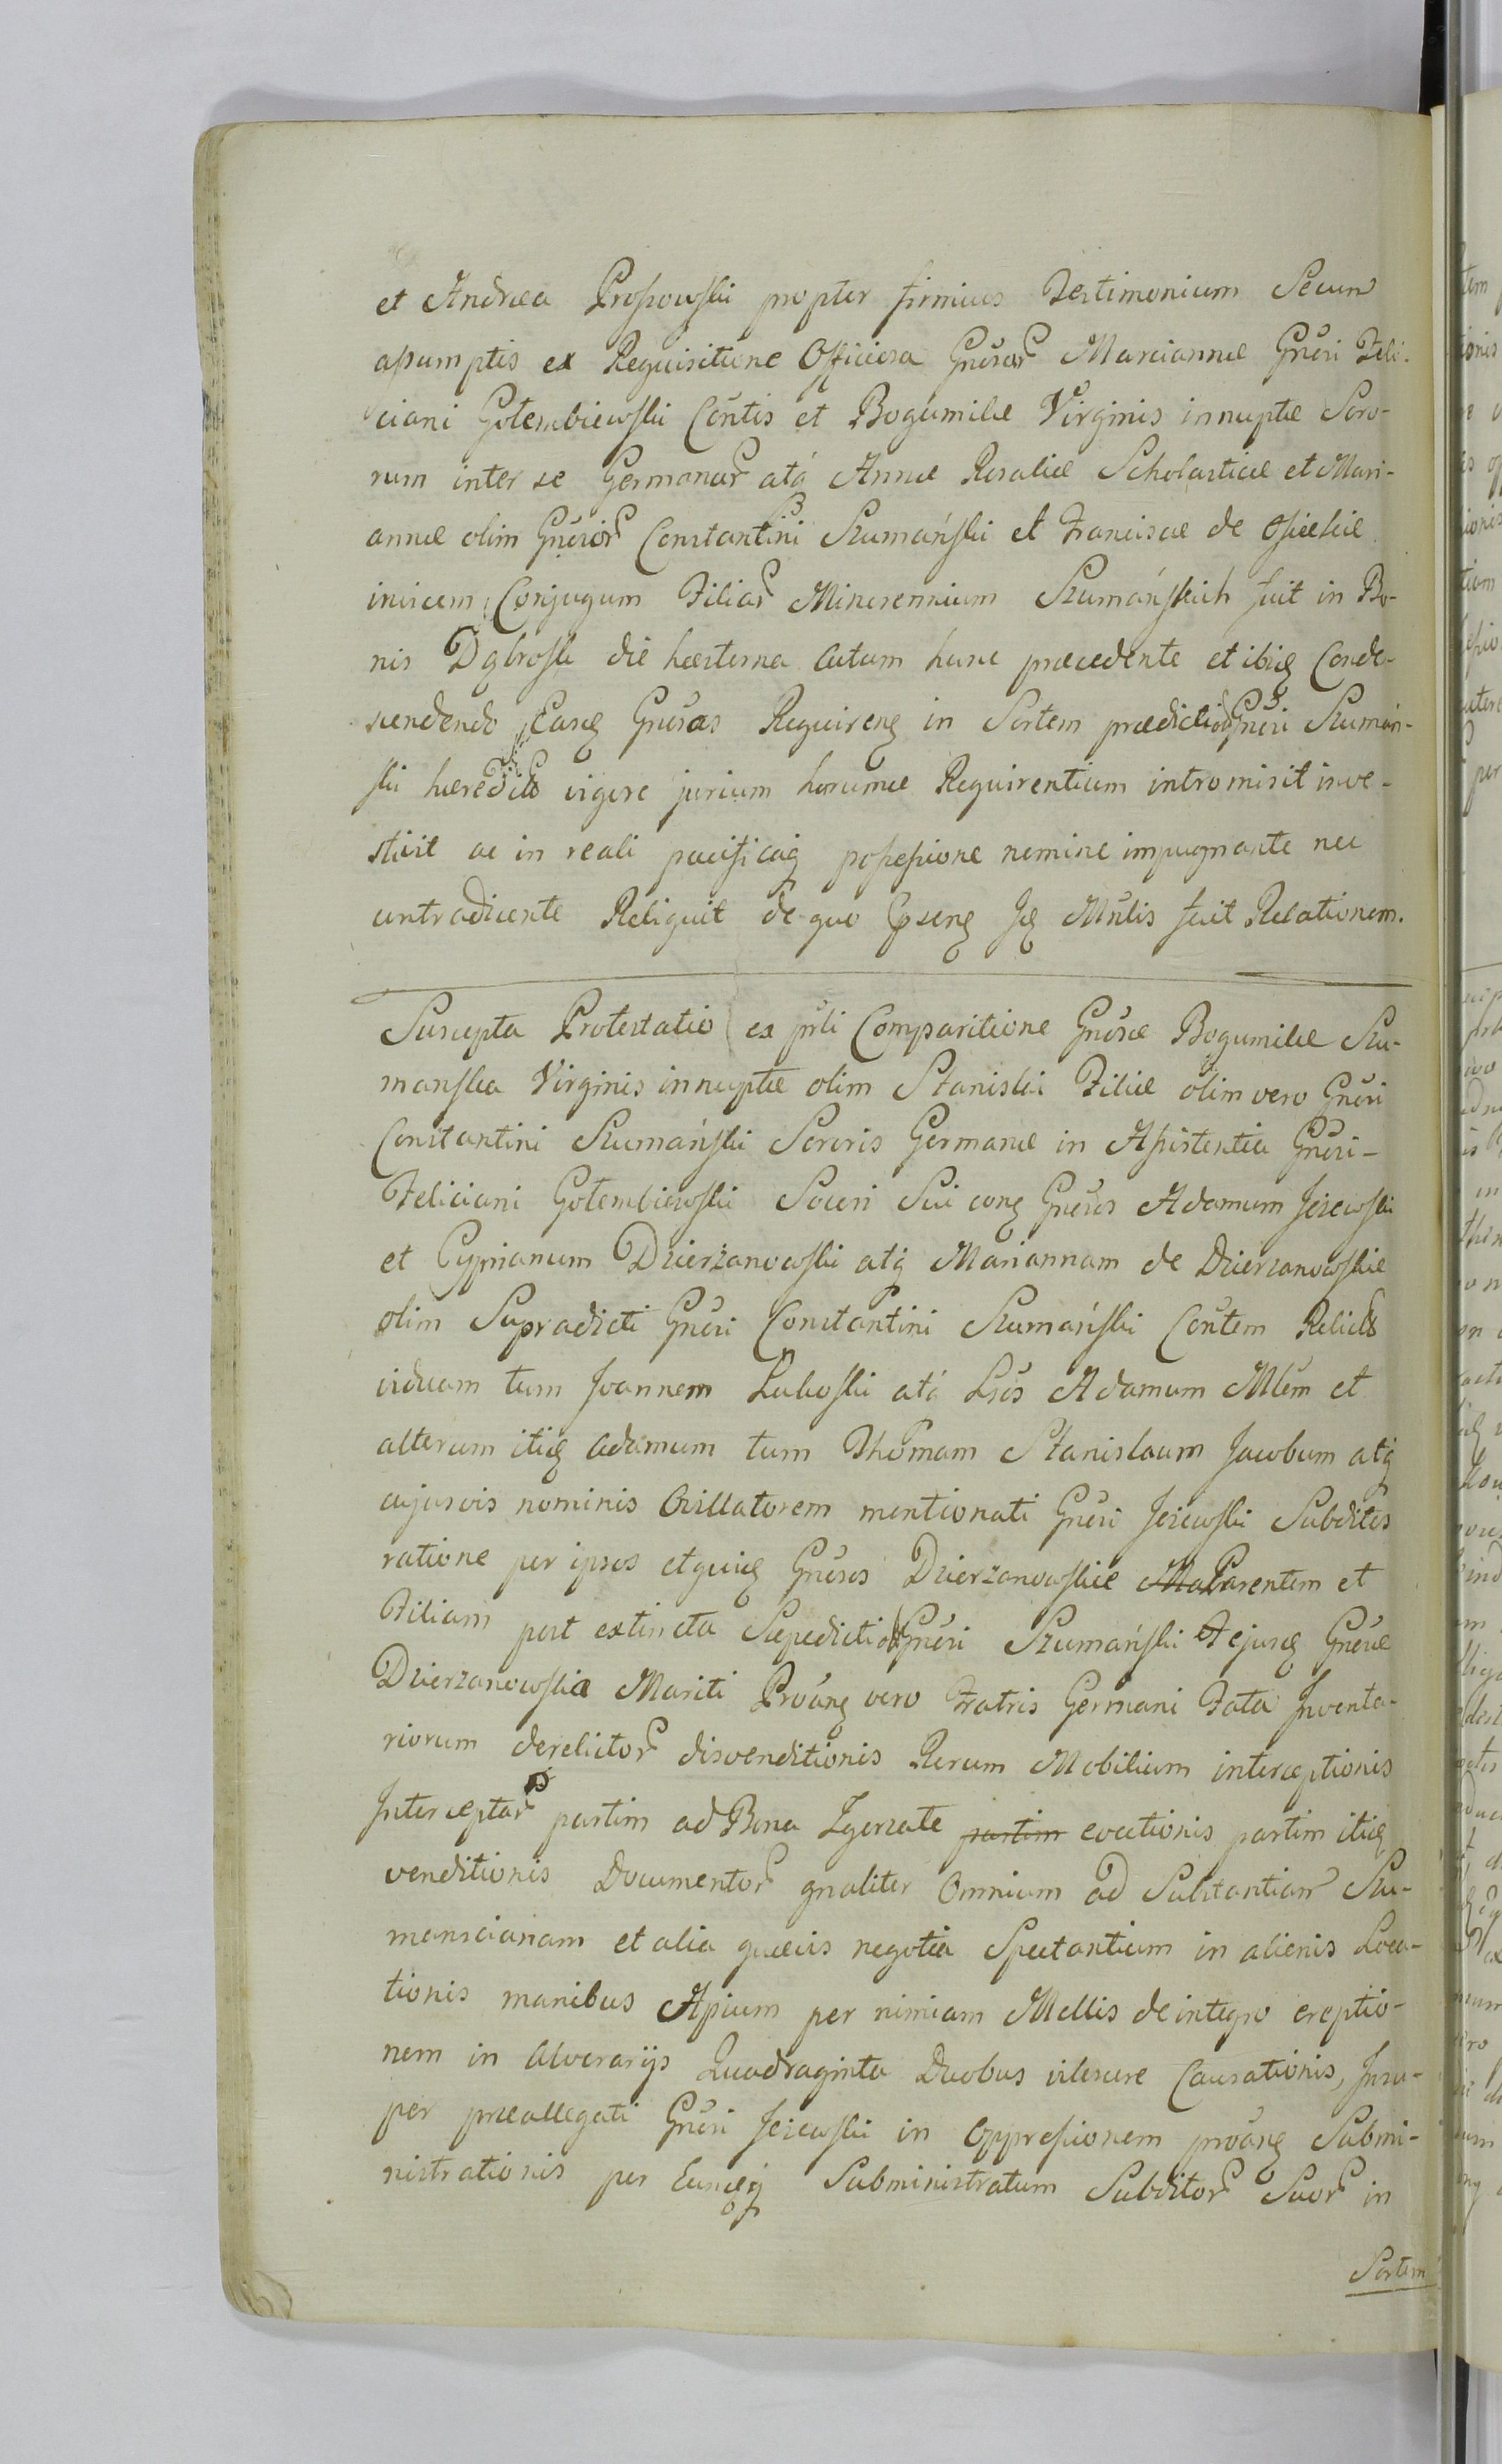 et Andrea Prossowski propter firmius Testimonium Secum
assumptis ex Requisitione Officiosa Gnosar Marciannæ Gnosi Feli-
ciani Gołembiewski Contis et Bogumilæ Virginis innuptæ Soro-
rum inter se Germanar atq Annæ Rosaliæ Scholasticæ et Mari-
annæ olim Gnosor Constantini Szumański et Franciscæ de Osieckie
invicem Conjugum Filiar Minorennium Szumańskich fuit in Bo-
nis Dąbrosk die hesterna Actum hunc præcedente et ibiq Conde-
scendendo Easq Gnosas Requirenq in Sortem prædicti Gnosi Szumań-
ski hæredit vigore jurium harumce Requirentium intromisit inve-
stivit ac in reali pacificaq possessione nemine impugnante nec
contradicente Reliquit de quo Ipsenq Jq Mnlis fecit Relationem.
Suscepta Protestatio ex prsli Comparitione Gnosæ Bogumilæ Szu-
manska Virginis innuptæ olim Stanislai Filiæ olim vero Gnosi
Constantini Szumański Sororis Germanæ in Assistentia Gnosi
Feliciani Gołembiewski Soceri Sui conq Gnosos Adamum Jezewski
et Cyprianum Dzierżanowski atq Mariannam de Dzierzanowskie
olim Supradicti Gnosi Constantini Szumański Contem Relict
viduam tum Joannem Lukoski atq Lsos Adamum Mlem et
alterum itiq Adamum tum Thomam Stanislaum Jacobum atq
cujusvis nominis Ovillatorem mentionati Gnosi Jezewski Subditos
ratione per ipsos et quiq Gnosos Dzierzanowskie Ma Parentem et
Filiam post extincta Sæpedicti Gnosi Szumański et ejusq Gnosæ
Dzierzanowska Mariti Proanq vero Fratris Germani Fata Inventa-
riorum derelictor disvenditionis Rerum Mobilium interceptionis
Interceptar partim ad Bona Zgorzate partim evectionis partim itiq
venditionis Documentor gnaliter Omnium ad Substantiam Szu-
manscianam et alia quævis negotia Spectantium in alienis Loca-
tionis manibus Apium per nimiam Mellis de integro ereptio-
nem in Alverarijs Quadraginta Duobus vilescere Causationis, Insu-
per præallegati Gnosi Jezewski in Oppressionem proanq Submi-
nistrationis per Eumq Subministratum Subditor Suor in
Sortem